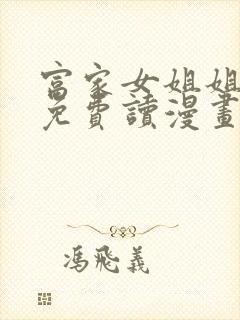 富家女姐姐
免費讀漫畫
馮飛義